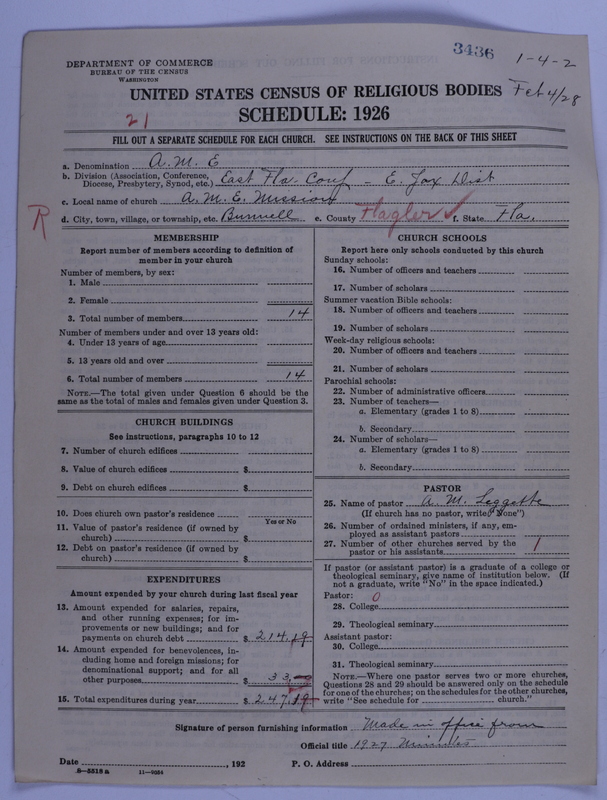 3436
1-4-2
DEPARTMENT OF COMMERCE
BUREAU OF THE CENSUS
WASHINGTON
UNITED STATES CENSUS OF RELIGIOUS BODIES
Feb 4/28
SCHEDULE: 1926
21
FILL OUT A SEPARATE SCHEDULE FOR EACH CHURCH. SEE INSTRUCTIONS ON THE BACK OF THIS SHEET
a. Denomination A.M.E
b. Division (Association, Conference, Diocese, Presbytery, Synod, etc.) East Fla. Conf - E. Jax Dist
c. Local name of church A.M.E. Mission
R
d. City, town, village, or township, etc. Bunnell e. County Flagler ✓ f. State Fla.
MEMBERSHIP
Report number of members according to definition of
member in your church
Number of members, by sex:
1. Male
2. Female
3. Total number of members 14
Number of members under and over 13 years old:
4. Under 13 years of age
5. 13 years old and over
6. Total number of members 14
NOTE.—The total given under Question 6 should be the
same as the total of males and females given under Question 3.
CHURCH BUILDINGS
See instructions, paragraphs 10 to 12
7. Number of church edifices
8. Value of church edifices $
9. Debt on church edifices $
10. Does church own pastor's residence
Yes or No
11. Value of pastor's residence (if owned by
church) $
12. Debt on pastor's residence (if owned by
church) $
EXPENDITURES
Amount expended by your church during last fiscal year
13. Amount expended for salaries, repairs,
and other running expenses; for im-
provements or new buildings; and for
payments on church debt $ 214.19
14. Amount expended for benevolences, in-
cluding home and foreign missions; for
denominational support; and for all
other purposes $ 33
15. Total expenditures during year $ 247.19
CHURCH SCHOOLS
Report here only schools conducted by this church
Sunday schools:
16. Number of officers and teachers
17. Number of scholars
Summer vacation Bible schools:
18. Number of officers and teachers
19. Number of scholars
Week-day religious schools:
20. Number of officers and teachers
21. Number of scholars
Parochial schools:
22. Number of administrative officers
23. Number of teachers—
a. Elementary (grades 1 to 8)
b. Secondary
24. Number of scholars—
a. Elementary (grades 1 to 8)
b. Secondary
PASTOR
25. Name of pastor A. M. Leggette
(If church has no pastor, write "None")
26. Number of ordained ministers, if any, em-
ployed as assistant pastors
27. Number of other churches served by the
pastor or his assistants 1
If pastor (or assistant pastor) is a graduate of a college or
theological seminary, give name of institution below. (If
not a graduate, write "No" in the space indicated.)
Pastor: 0
28. College
29. Theological seminary
Assistant pastor:
30. College
31. Theological seminary
NOTE.—Where one pastor serves two or more churches,
Questions 28 and 29 should be answered only on the schedule
for one of the churches; on the schedules for the other churches,
write "See schedule for church."
Signature of person furnishing information Made in office from
Official title 1927 Minutes
Date , 192 P. O. Address
8-5518a 11-9054